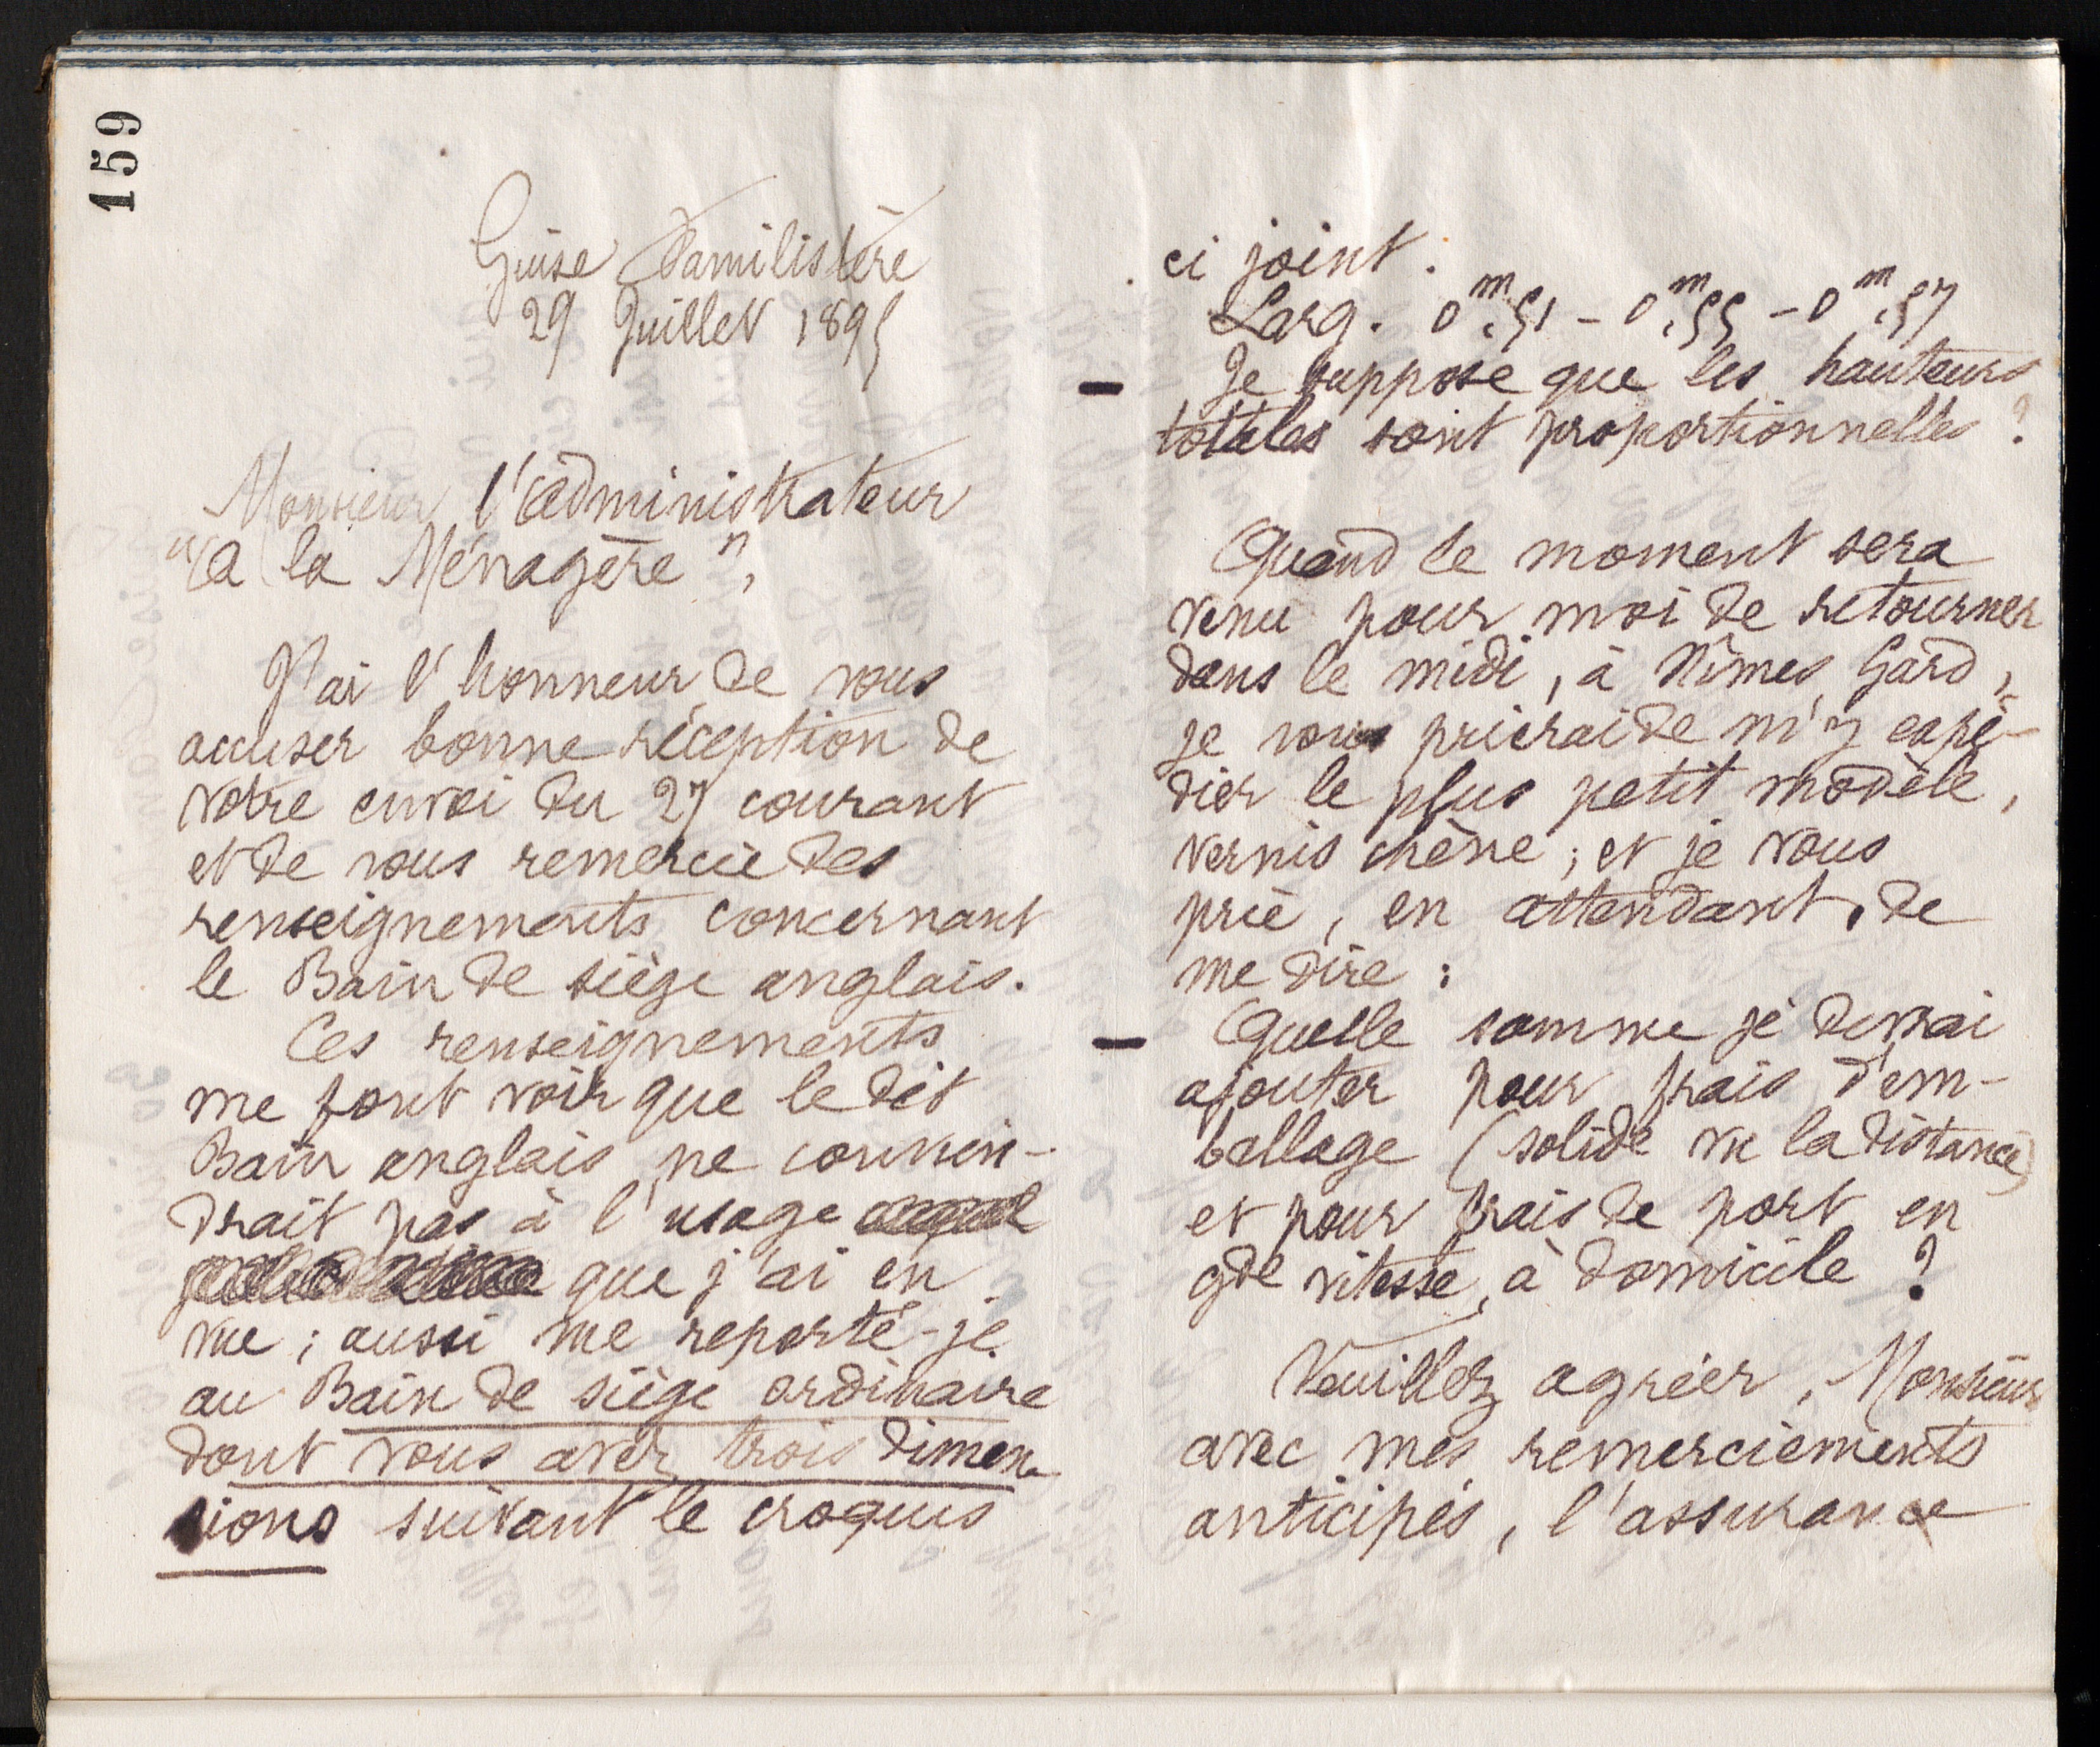 159
Guise Familistère
29 Juillet 1895
Monsieur l'administrateur
"A la Ménagère",
J'ai l'honneur de vous
accuser bonne réception de
votre envoi du 27 courant
et de vous remercie des
renseignements concernant
le Bain de siège anglais.
Ces renseignements
me font voir que le dit
Bain anglais ne convien-
drait pas à l'usage
que j'ai en
vue ; aussi me reporté-je
au Bain de siège ordinaire
dont vous avez trois dimen
sions suivant le croquis
ci joint.
Larg. 0m,51 - 0m,55 - 0m,57
- Je suppose que les hauteurs
totales sont proportionnelles ?
Quand le moment sera
venu pour moi de retourner
dans le midi, à Nîmes, Gard,
je vous prierai de m'y expé-
dier le plus petit modèle,
vernis chêne ; et je vous
prie, en attendant, de
me dire :
- Quelle somme je devrai
ajouter pour frais d'em-
ballage (solide vu la distance)
et pour frais de port en
gde vitesse, à domicile ?
Veuillez agréer, Monsieur
avec mes remerciements
anticipés, l'assurance